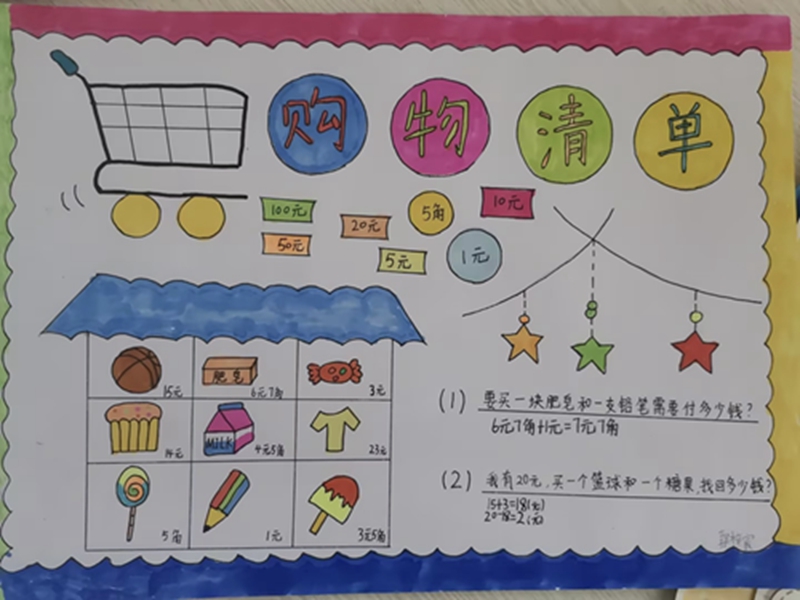 购物清单
100元
20元
5角
10元
50元
5元
1元
15元
肥皂
6元7角
3元
14元
MILK
4元5角
23元
5角
1元
3元5角
(1) 要买一块肥皂和一支铅笔需要付多少钱?
6元7角+1元=7元7角
(2) 我有20元,买一个篮球和一个糖果,找回多少钱?
15+3=18(元)
20-18=2(元)